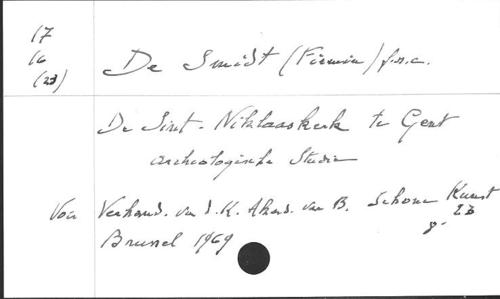 17
16
(23)
De Smidt (Firmin) f.s.c.
De Sint-Niklaaskerk te Gent
archeologische Studie
Voir Verhand. van d. K. Akad. van B. Schone Kunst
g. 23
Brussel 1969